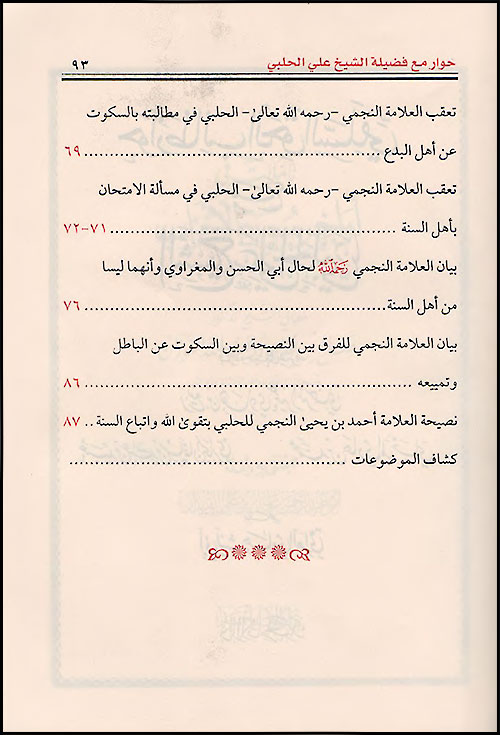 حوار مع فضيلة الشيخ علي الحلبي ٩٣
تعقب العلامة النجمي -رحمه الله تعالىٰ- الحلبي في مطالبته بالسكوت
عن أهل البدع ........................................................ ٦٩
تعقب العلامة النجمي -رحمه الله تعالىٰ- الحلبي في مسألة الامتحان
بأهل السنة ........................................................ ٧١-٧٢
بيان العلامة النجمي رَحِمَهُ اللَّهُ لحال أبي الحسن والمغراوي وأنهما ليسا
من أهل السنة........................................................ ٧٦
بيان العلامة النجمي للفرق بين النصيحة وبين السكوت عن الباطل
وتمييعه ........................................................ ٨٦
نصيحة العلامة أحمد بن يحيىٰ النجمي للحلبي بتقوىٰ الله واتباع السنة .. ٨٧
كشاف الموضوعات ........................................................